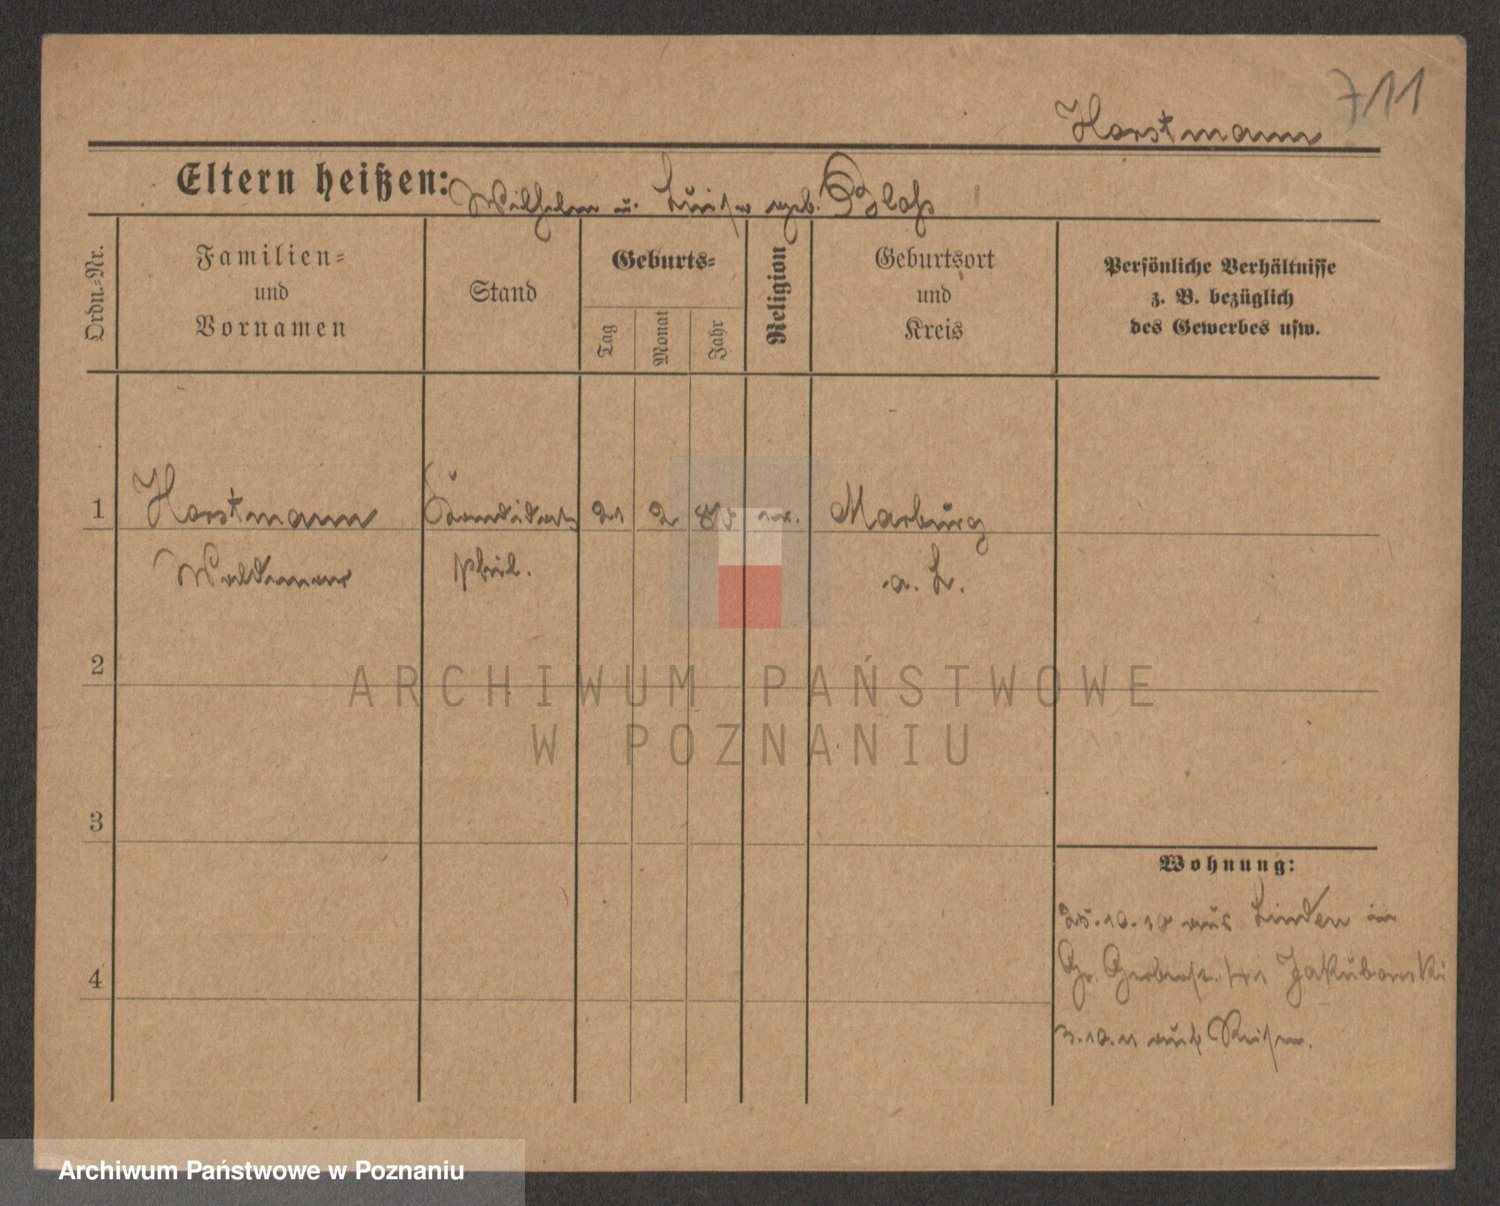 711
Horstmann
Eltern heißen: Wilhelm u. Luise geb. Bloß
Ordn.-Nr.
Familien-
und
Vornamen
Stand
Geburts-
Tag
Monat
Jahr
Religion
Geburtsort
und
Kreis
Persönliche Verhältnisse
z. B. bezüglich
des Gewerbes usw.
1 Horstmann Kandidat 21 2 ev. Marburg
Waldemar phil. a. L.
2
3
4
Wohnung:
25.10.10 aus Linden in
Gr. Gerberstr. bei Jakubowski
3.10.11 auf Reisen.
ARCHIWUM PAŃSTWOWE
W POZNANIU
Archiwum Państwowe w Poznaniu